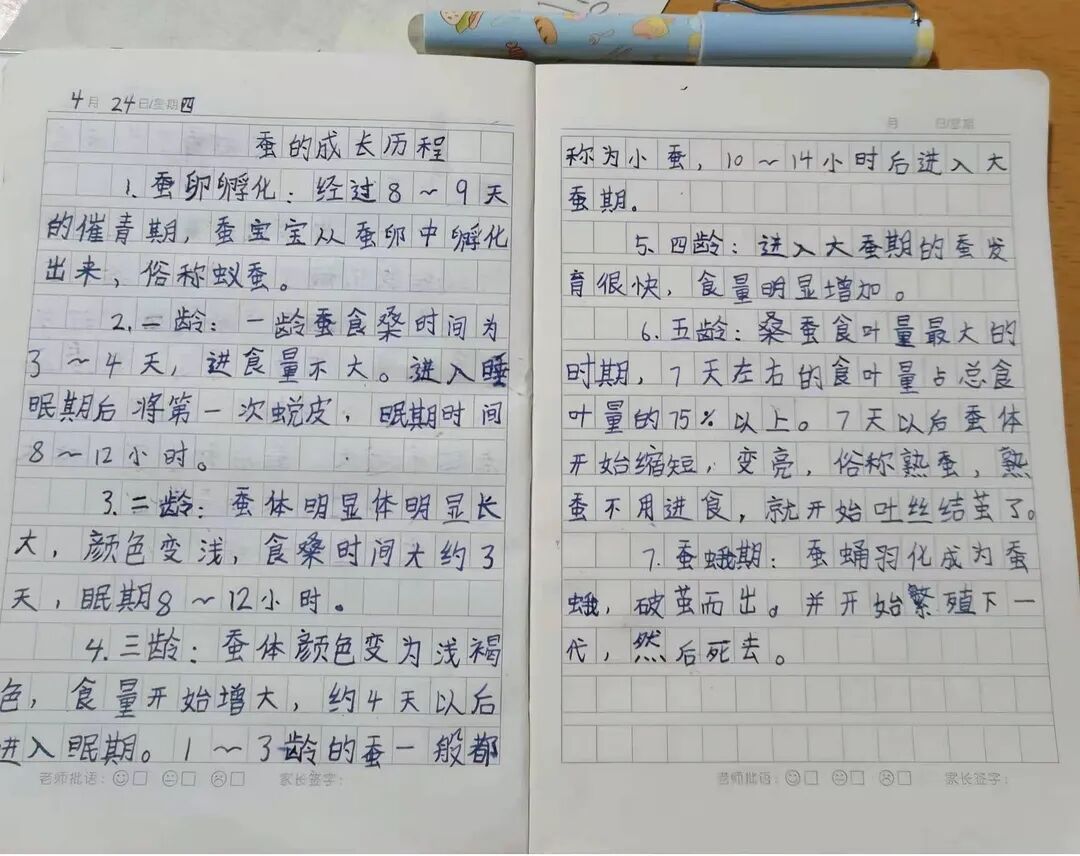 4月 24日/星期四
蚕的成长历程
1. 蚕卵孵化：经过8～9天
的催青期，蚕宝宝从蚕卵中孵化
出来，俗称蚁蚕。
2. 一龄：一龄蚕食桑时间为
3～4天，进食量不大。进入睡
眠期后将第一次蜕皮，眠期时间
8～12小时。
3. 二龄：蚕体明显体明显长
大，颜色变浅，食桑时间大约3
天，眠期8～12小时。
4. 三龄：蚕体颜色变为浅褐
色，食量开始增大，约4天以后
进入眠期。1～3龄的蚕一般都
老师批语： 家长签字：
月 日/星期
称为小蚕，10～14小时后进入大
蚕期。
5. 四龄：进入大蚕期的蚕发
育很快，食量明显增加。
6. 五龄：桑蚕食叶量最大的
时期，7天左右的食叶量占总食
叶量的75%以上。7天以后蚕体
开始缩短，变亮，俗称熟蚕，熟
蚕不用进食，就开始吐丝结茧了。
7. 蚕蛾期：蚕蛹羽化成为蚕
蛾，破茧而出。并开始繁殖下一
代，然后死去。
老师批语： 家长签字：